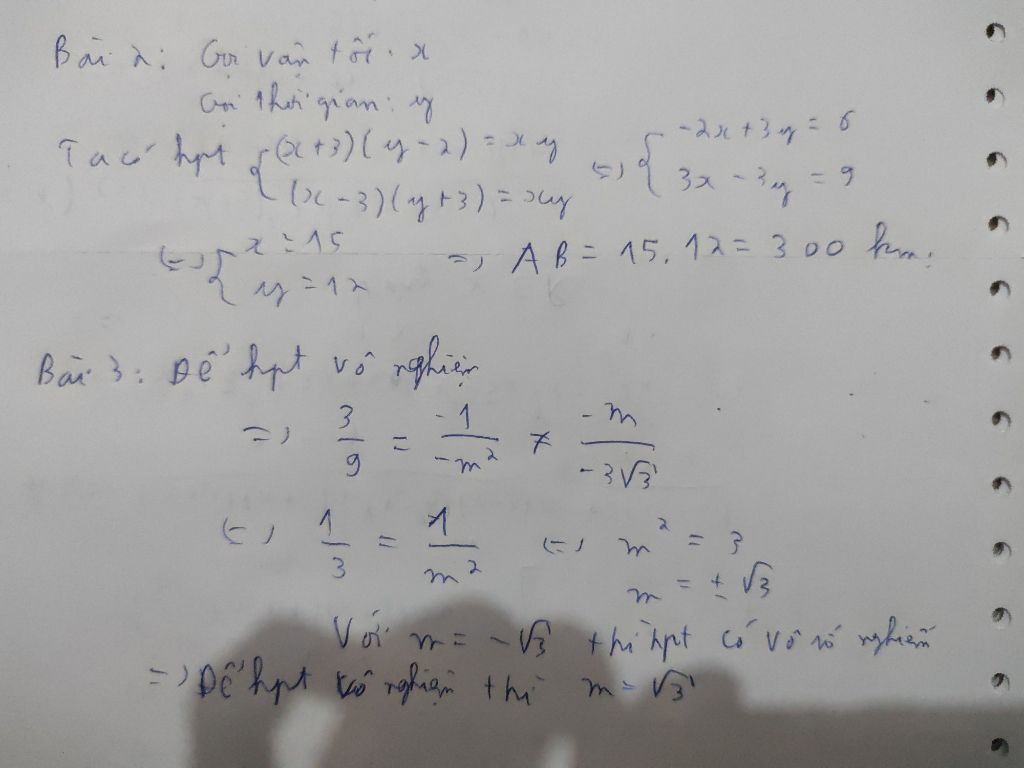 Bài 2: Gọi vận tốc: x
Gọi thời gian: y
Ta có hpt { (x+3)(y-2) = xy (=) { -2x+3y = 6
(x-3)(y+3) = xy 3x-3y = 9
(=) { x = 15 => AB = 15.12 = 300 km.
y = 12
Bài 3: Để hpt vô nghiệm
=> 3/9 = -1/-m² ≠ -m/-3√3
(=) 1/3 = 1/m² (=) m² = 3
m = ±√3
Với m = -√3 thì hpt có vô số nghiệm
=> Để hpt vô nghiệm thì m = √3